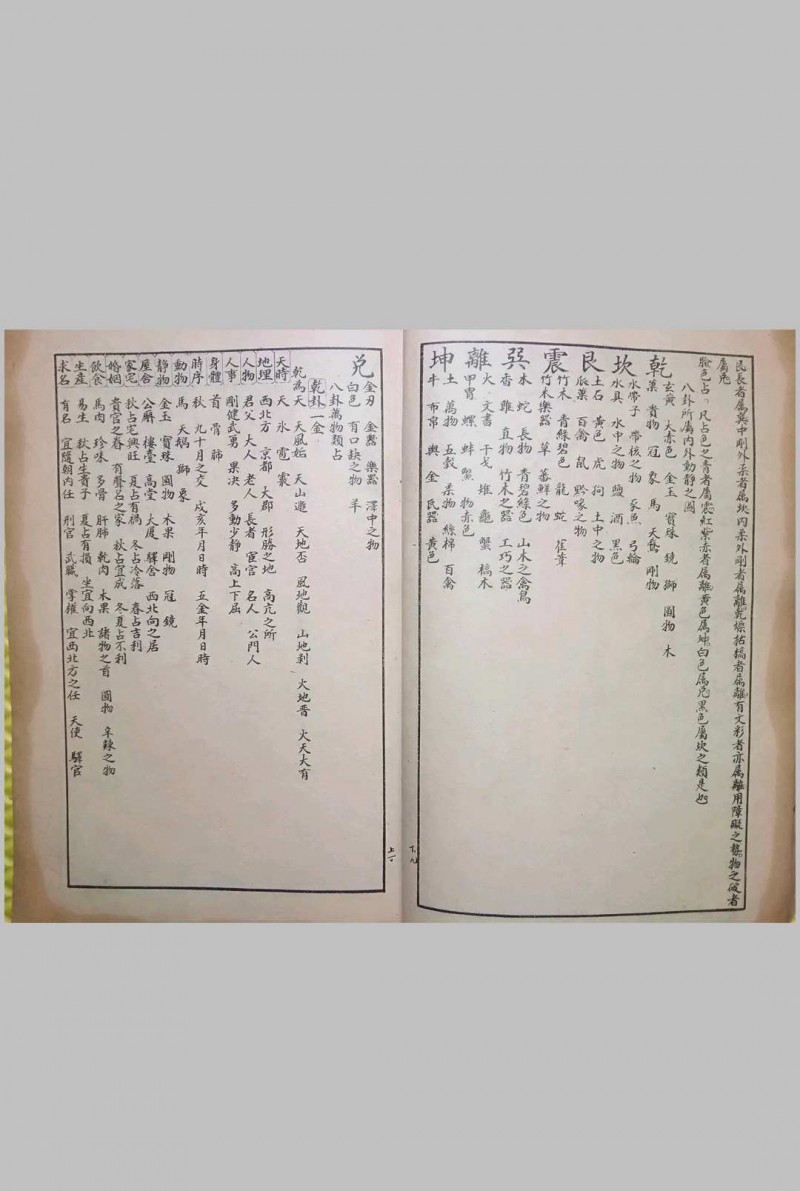 艮長者屬巽中剛外柔者屬坎內柔外剛者屬離乾燥枯槁者屬離有文彩者亦屬離用障礙之勢物之破者
屬兌
驗色占凡占色之青者屬震紅紫赤者屬離黃色屬坤白色屬兌黑色屬坎之類是也
八卦所屬內外動靜之圖
乾
玄黃 大赤色 金玉 寶珠 鏡 獅 圓物 木
菓 貴物 冠 象 馬 天鵞 剛物
坎
水帶子 帶核之物 豕魚 弓輪
水具 水中之物 鹽 酒 黑色
艮
土石 黃色 虎 狗 土中之物
瓜菓 百禽 鼠 黔喙之物
震
竹木 青綠碧色 龍 蛇 萑葦
竹木樂器 草 蕃鮮之物
巽
木 蛇 長物 青碧綠色 山木之禽鳥
香 雞 直物 竹木之器 工巧之器
離
火 文書 干戈 雉 龜 蟹 槁木
甲冑 螺 蚌 鱉 物赤色
坤
土 萬物 五穀 柔物 絲棉 百禽
牛 布帛 輿 金 瓦器 黃色
下九
兌
金刃 金器 樂器 澤中之物
白色 有口缺之物 羊
八卦萬物類占
乾卦一金
乾為天 天風姤 天山遯 天地否 風地觀 山地剝 火地晋 火天大有
天時 天 氷 雹 霰
地理 西北方 京都 大郡 形勝之地 高亢之所
人物 君父 大人 老人 長者 宦官 名人 公門人
人事 剛健武勇 果決 多動少靜 高上下屈
身體 首 骨 肺
時序 秋 九十月之交 戌亥年月日時 五金年月日時
動物 馬 天鵝 獅 象
靜物 金玉 寶珠 圓物 木果 剛物 冠 鏡
屋舍 公廨 樓臺 高堂 大厦 驛舍 西北向之居
家宅 秋占宅興旺 夏占有禍 冬占冷落 春占吉利
婚姻 貴官之眷 有聲名之家 秋占宜成 冬夏占不利
飲食 馬肉 珍味 多骨 肝肺 乾肉 木果 諸物之首 圓物 辛辣之物
生產 易生 秋占生貴子 夏占有損 坐宜向西北
求名 有名 宜隨朝內任 刑官 武職 掌權 宜西北方之任 天使 驛官